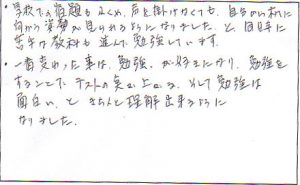 ・学校での宿題も述べ、声を掛けなくても、自分から机に
向かう姿勢が見られるようになりました。と同時に
苦手の教科も進んで勉強しています。
・一番変わった事は、勉強が好きになり、勉強を
することで、テストの点が上がる、そして勉強は
面白い、ときちんと理解出来るように
なりました。